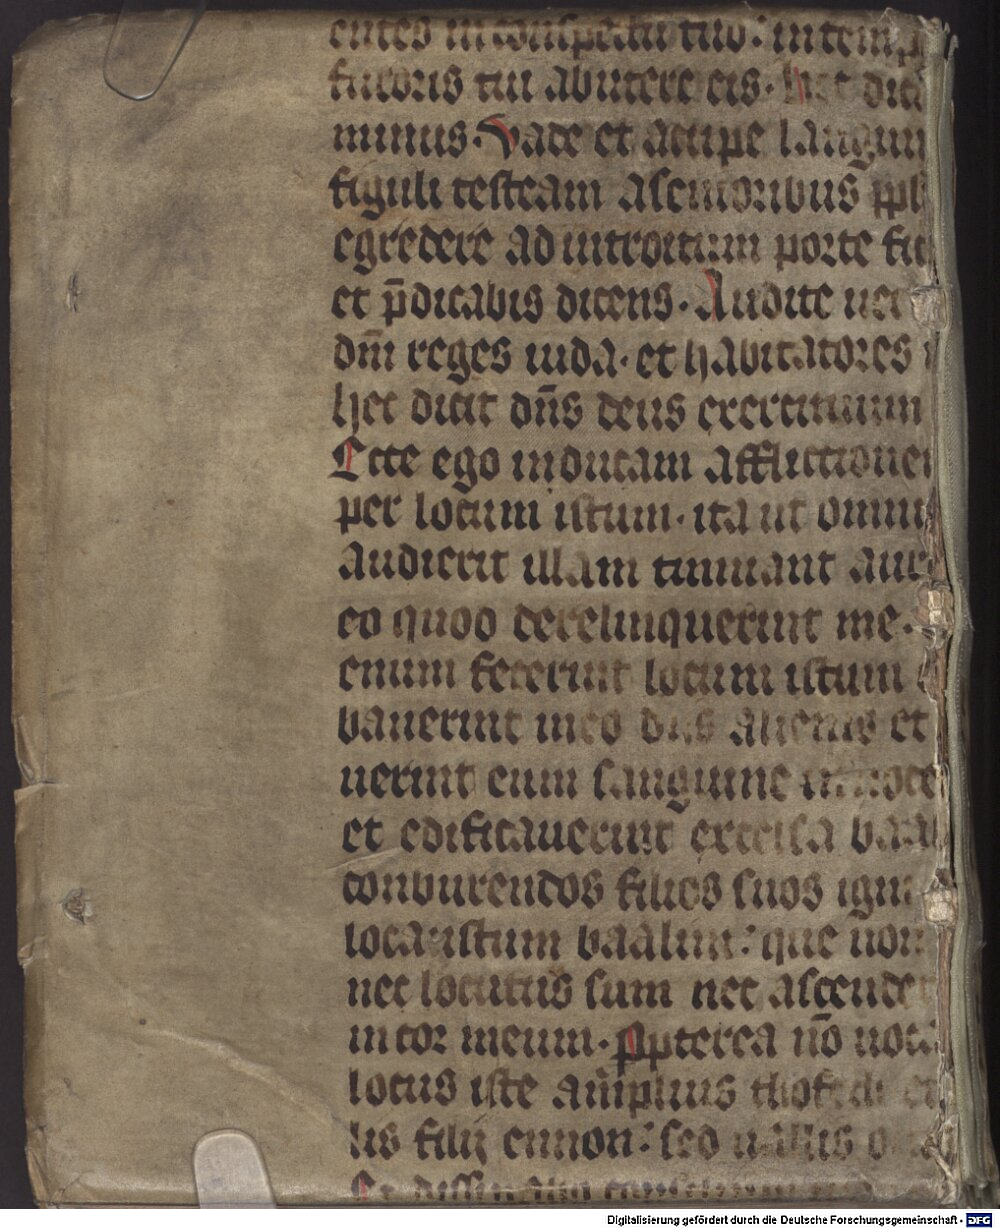 entes in conspectu tuo: in temp
furoris tui abutere eis. Hec dicit
minus. Vade et accipe lagun
figuli testeam a senioribus ppli
egredere ad introitum porte fic
et p̄dicabis dicens. Audite uer
dn̄i reges iuda. et habitatores
hec dicit dn̄s deus exercituum
Ecce ego inducam afflictione
per locum istum. ita ut omnis
audierit illam tinniant aur
eo quod derelinquerint me.
enum fecerint locum istum
bauerint in eo diis alienis et
uerint eum sanguine innoce
et edificauerint excelsa baal
conburendos filios suos igni
locaustum baalim: que non
nec locutus sum nec ascender
in cor meum. ppterea n̄o uoca
locus iste amplius thofeth et
lis filij ennon: sed uallis occi
Et dissipabo consilium
Digitalisierung gefördert durch die Deutsche Forschungsgemeinschaft - DFG